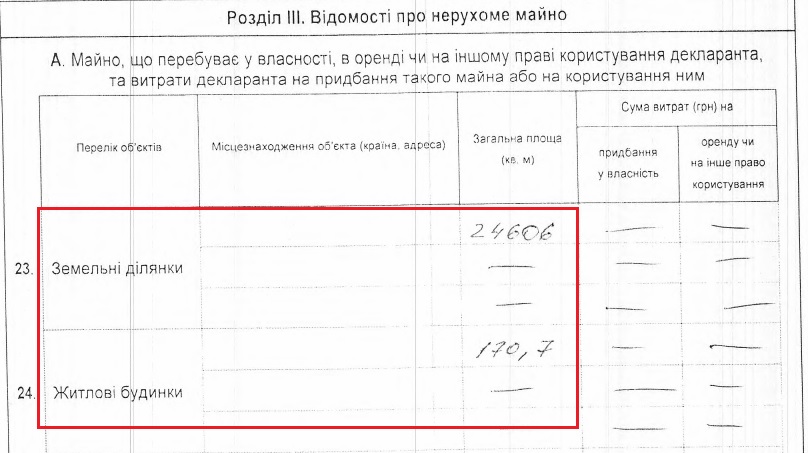 Розділ III. Відомості про нерухоме майно
А. Майно, що перебуває у власності, в оренді чи на іншому праві користування декларанта,
та витрати декларанта на придбання такого майна або на користування ним
Перелік об'єктів
Місцезнаходження об'єкта (країна, адреса)
Загальна площа
(кв. м)
Сума витрат (грн) на
придбання
у власність
оренду чи
на інше право
користування
23. Земельні ділянки
24606 — —
— — —
— — —
24. Житлові будинки
170,7 — —
— — —
— —